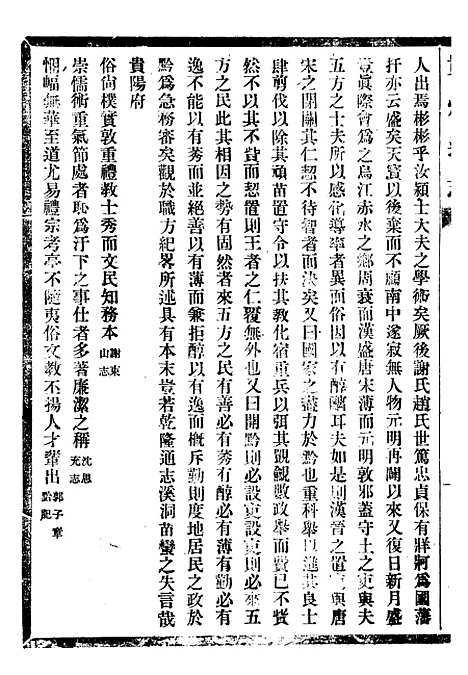 人出焉彬彬乎汝潁士大夫之學術矣厥後謝氏趙氏世篤忠貞保有牂牁爲國藩
扞亦云盛矣天寶以後棄而不顧南中遂寂無人物元明再闢以來又復日新月盛
豈眞際會爲之烏江赤水之鄉周衰而漢盛唐宋薄而元明敦邪蓋守土之吏與夫
五方之士夫所以感宿導率者異而俗因以有醇醨耳夫如是則漢晉之置吏與唐
宋之閉關其仁恝不待智者而決矣又曰國家之盡力於黔也重科舉以進其良士
肆剪伐以除其頑苗置守令以扶其敎化宿重兵以弭其覬覦數政舉而費已不貲
然不以其不貲而恝置則王者之仁覆無外也又曰開黔則必設吏設吏則必來五
方之民此其相因之勢有固然者來五方之民有善必有莠有醇必有薄有勤必有
逸不能以有莠而並絕善以有薄而兼拒醇以有逸而槪斥勤則度地居民之政於
黔爲急務審矣觀於職方紀畧所述具有本末豈若乾隆通志溪洞苗蠻之失言哉
貴陽府
俗尙樸實敦重禮敎士秀而文民知務本謝東山志
崇儒術重氣節處者恥爲汙下之事仕者多著廉潔之稱沈思充志
悃愊無華至道尤易禮宗考亭不隨夷俗文敎丕揚人才輩出郭子章黔記